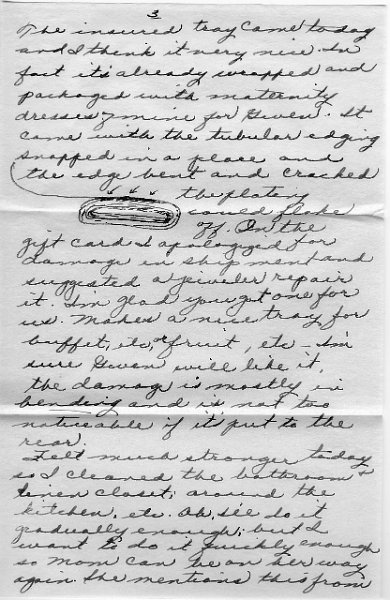 3
The insured tray came today
and I think it very nice. In
fact it's already wrapped and
packaged with maternity
dresses of mine for Gwen. It
came with the tubular edging
snapped in a place and
the edge bent and cracked
the plating
would flake
off. In the
gift card I apologized for
damage in shipment and
suggested a jeweler repair
it. I'm glad you got one for
us. Makes a nice tray for
buffet, etc, or fruit, etc - I'm
sure Gwen will like it,
the damage is mostly in
bending and is not too
noticeable if it's put to the
rear.
Felt much stronger today
so I cleaned the bathroom &
linen closet; around the
kitchen, etc. Oh, I'll do it
gradually enough; but I
want to do it quickly enough
so Mom can be on her way
again. She mentions this from